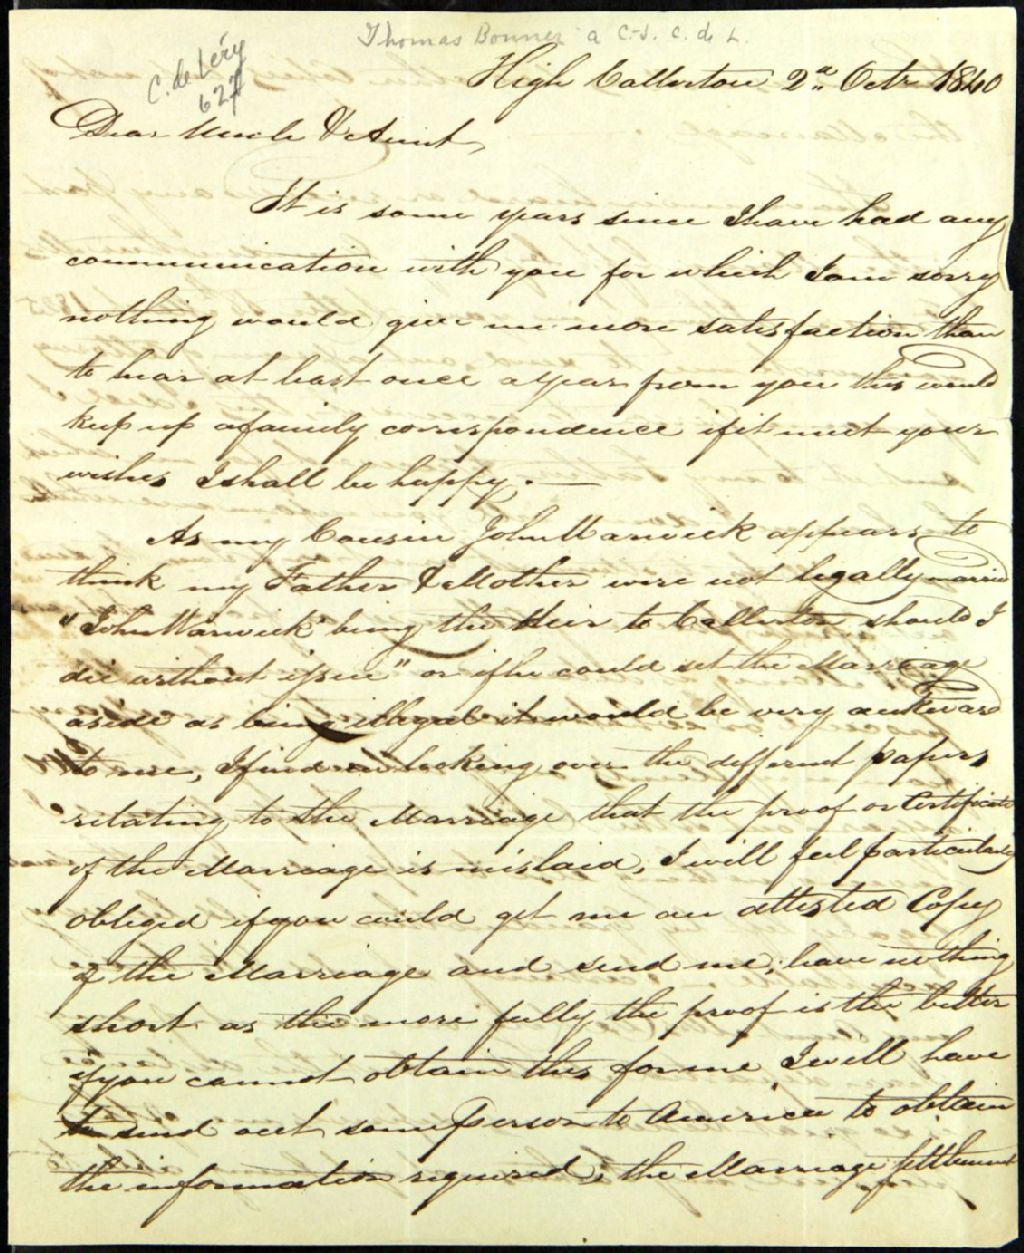 Thomas Bonner à C-J. C. de L.
C. de Léry
627
High Callerton 2d Octr 1840
Dear Uncle & Aunt,
It is some years since I have had any
communication with you for which I am sorry
nothing would give me more satisfaction than
to hear at least once a year from you this would
keep up a family correspondence if it meet your
wishes I shall be happy. —
As my Cousin John Warwick appears to
think my Father & Mother were not legally married
"John Warwick being the Heir to Callerton should I
die without issue" or if he could set the Marriage
aside as being illegal it would be very awkward
to me, I find on looking over the different papers
relating to the Marriage that the proof or Certificate
of the Marriage is mislaid, I will feel particularly
obliged if you could get me an attested Copy
of the Marriage and send me, leave nothing
short as the more fully the proof is the better
if you cannot obtain this for me I will have
to send out some Person to America to obtain
the information required, the Marriage Settlement